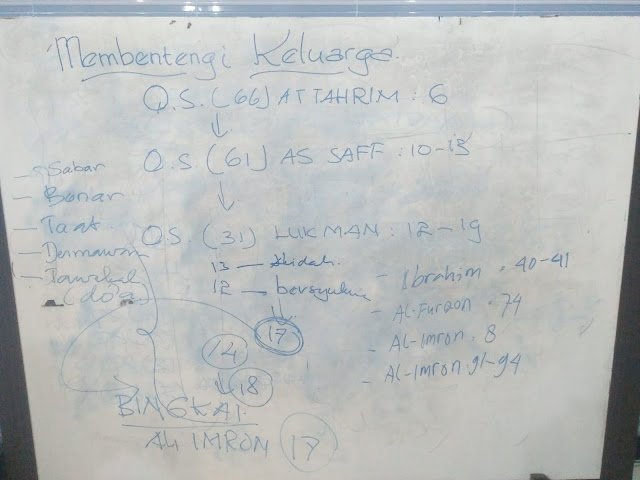 Membentengi Keluarga.
Q.S. (66) AT TAHRIM : 6
↓
Q.S (61) AS SAFF : 10-13
↓
Q.S. (31) LUKMAN : 12-19
- Sabar
- Benar
- Taat
- Dermawan
- Tawakal
(do'a
13 —
12 — bersyukur
↓
17
14
↓ 18
- Ibrahim : 40-41
- AL-Furqon : 74
- AL-Imron : 8
- AL-Imron : 91-94
BINGKAI
ALI IMRON 17